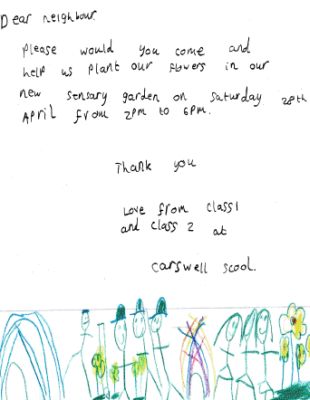 Dear neighbour
please would you come and
help us plant our flowers in our
new sensary garden on saturday 28th
April from 2pm to 6pm.
Thank you
Love from class1
and class 2 at
carswell scool.